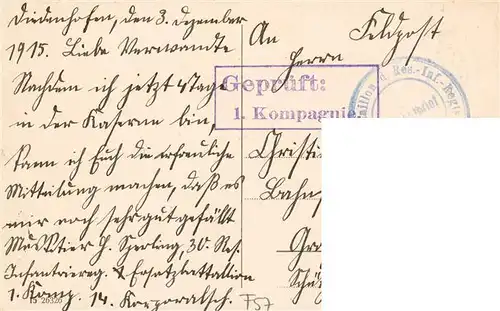 Diedenhofen, den 3. Dezember
1915. Liebe Verwandte
Nachdem ich jetzt 4 Tage
in der Kaserne bin,
kann ich Euch die erfreuliche
Mitteilung machen, daß es
mir noch sehr gut gefällt
Musketier H. Sperling, 30. Res.
Infantriereg. Ersatzbattallion
1. Komp. 14. Korporalsch.
An
Feldpost
Herrn
Geprüft:
1. Kompagnie
Res.-Inf.-Regi
Christi
Bahn
Gr
Sch
F57